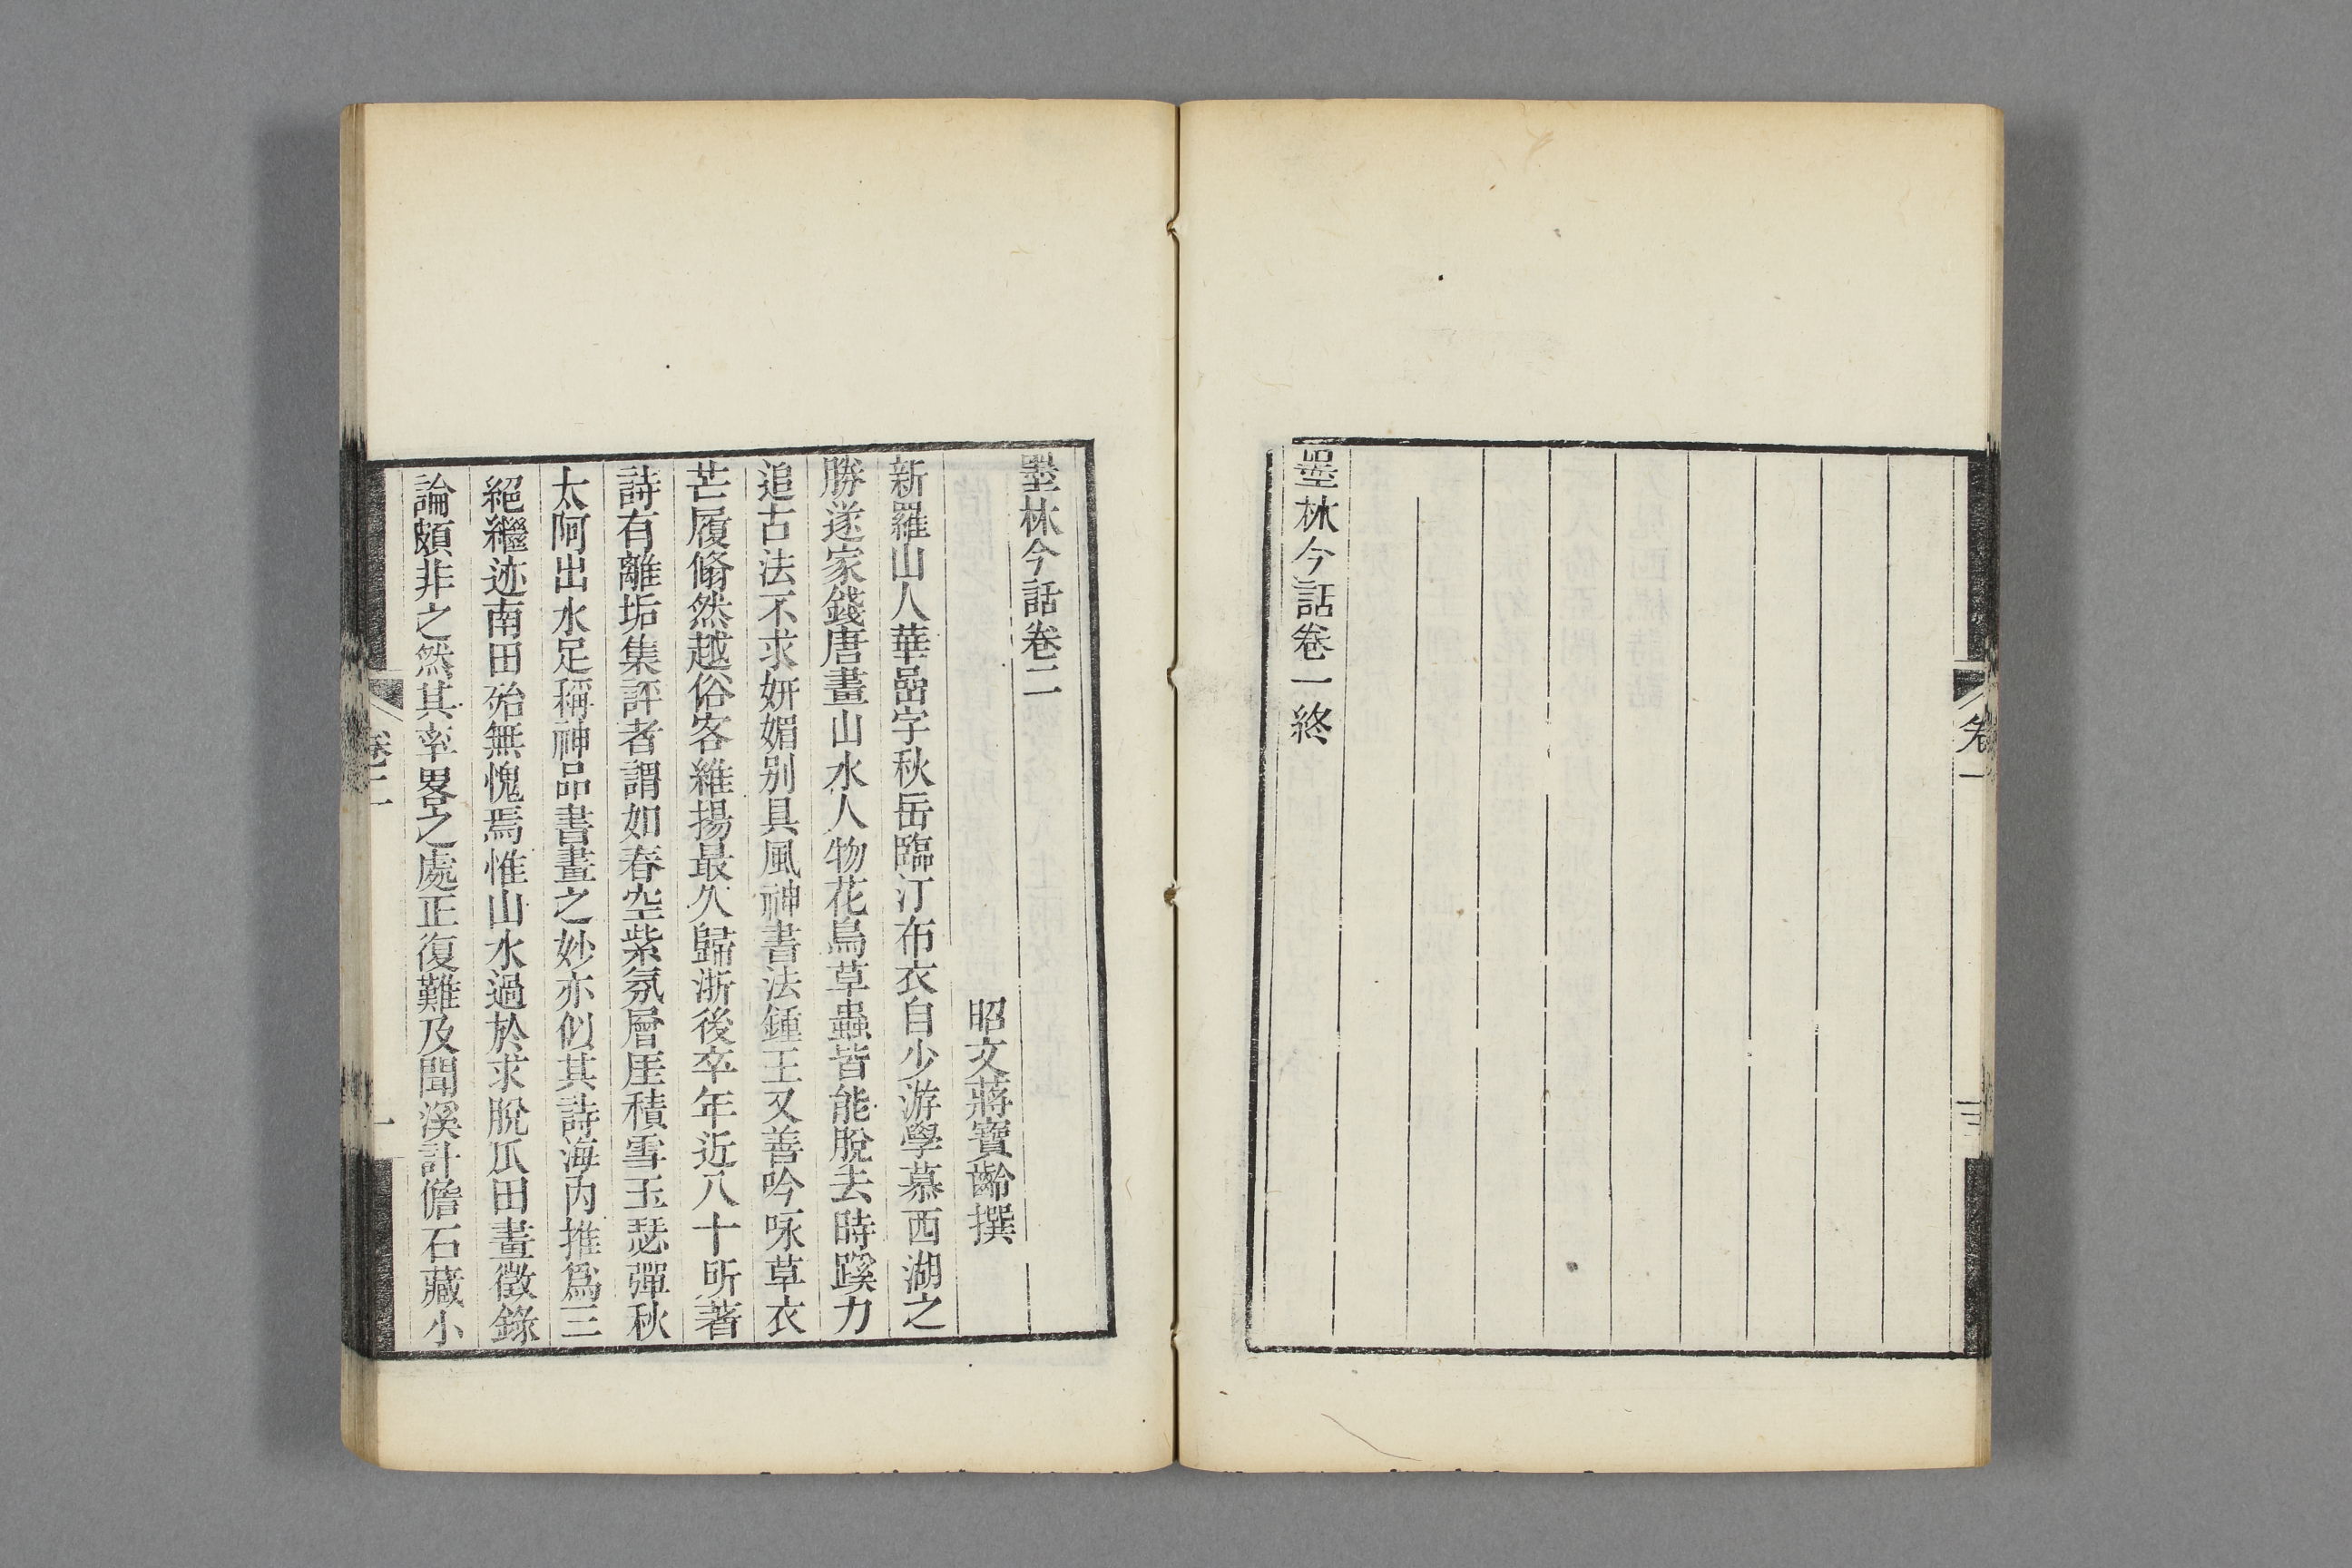 墨林今話卷一終
卷一
墨林今話卷二
昭文蔣寶齡撰
新羅山人華嵒字秋岳臨汀布衣自少游學慕西湖之
勝遂家錢唐畫山水人物花鳥草蟲皆能脫去時蹊力
追古法不求妍媚别具風神書法鍾王又善吟咏草衣
芒履翛然越俗客維揚最久歸浙後卒年近八十所著
詩有離垢集評者謂如春空紫氛層厓積雪玉瑟彈秋
太阿出水足稱神品書畫之妙亦似其詩海內推爲三
絕繼迹南田殆無愧焉惟山水過於求脫瓜田畫徵錄
論頗非之然其率畧之處正復難及聞溪計儋石藏小
卷二
一